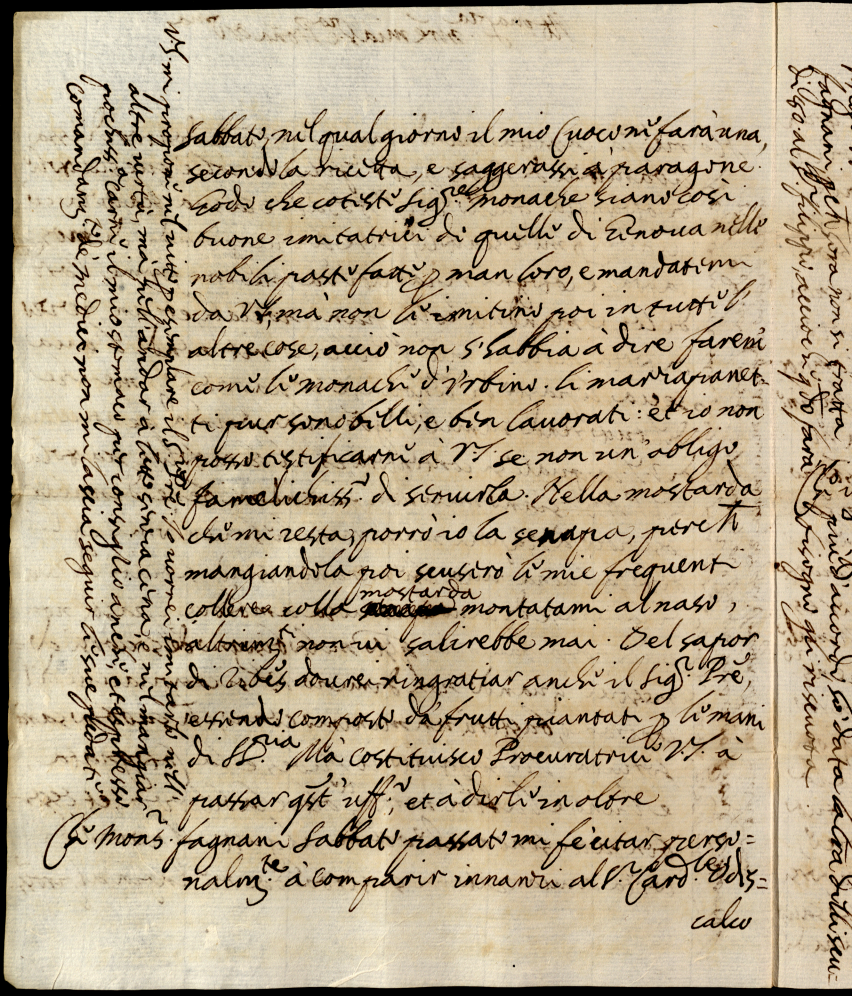 Sabbato, nel qual giorno il mio Cuoco ne farà una,
secondo la ricetta, e saggerassi à paragone.
Godo che coteste Sig.re monache siano così
buone imitatrici di quelle di Genova nelle
nobili paste fatte p man loro, e mandatemi
da V.S., mà non le imitino poi in tutte l'
altre cose, acciò non s'habbia à dire faremo
come le monache d'Urbino. li marzapanet-
ti pur sono belli, e ben lavorati: et io non
posso testificarne à V.S. se non un'obligo
famelichiss.o di servirla. Nella mostarda
che mi resta, porrò io la senapa, perche
mangiandola poi scuserò le mie frequenti
collere colla mostarda montatami al naso,
altrim.te non vi salirebbe mai. Del sapor
di Ribes dourei ringratiar anche il Sig.r Pre,
essendo composto da frutti piantati p le mani
di SS.ria Mà costituisco Procuratrice V.S. à
passar qst' uff.o, et à dirle in oltre
Che Mons.r fagnani Sabbato passato mi fè citar perso=
nalm.te à comparir innanzi al S.r Card.le Odes=
calco
V.S. mi propone nel vitto per esemplare il
altre virtù, mà nell'andar à letto senza cena, e nel mangiar
pochiss.a carne il mio stomaco pur consiglio
comandam.to de medici non mi lascia seguir le sue pedate
fagnani, p che hora non si tratta più d'accordo, s'è data